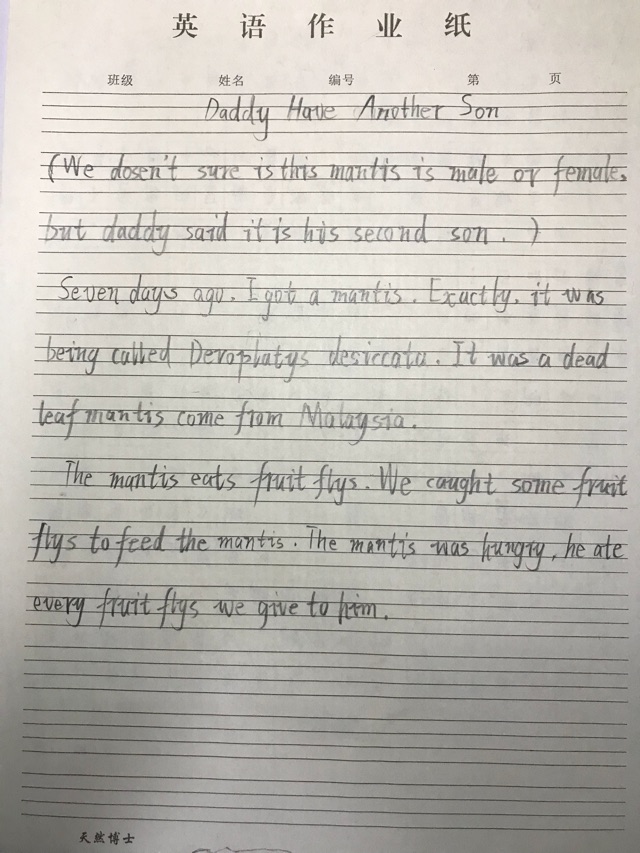 英语作业纸
班级 姓名 编号 第 页
Daddy Have Another Son
(We dosen't sure is this mantis is male or female,
but daddy said it is his second son. )
Seven days ago. I got a mantis. Exactly, it was
being called Deroplatys desiccata. It was a dead
leaf mantis come from Malaysia.
The mantis eats fruit flys. We caught some fruit
flys to feed the mantis. The mantis was hungry, he ate
every fruit flys we give to him.
天然博士